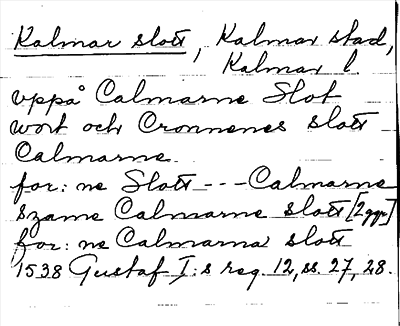 Kalmar slott, Kalmar stad,
Kalmar l.
vppå Calmarne Slot
wort och Cronnenes slott
Calmarne
for: ne Slott - - - Calmarne
szame Calmarne slott [2 ggr]
for: ne Calmarna slott
1538 Gustaf I: s reg. 12, ss. 27, 28.